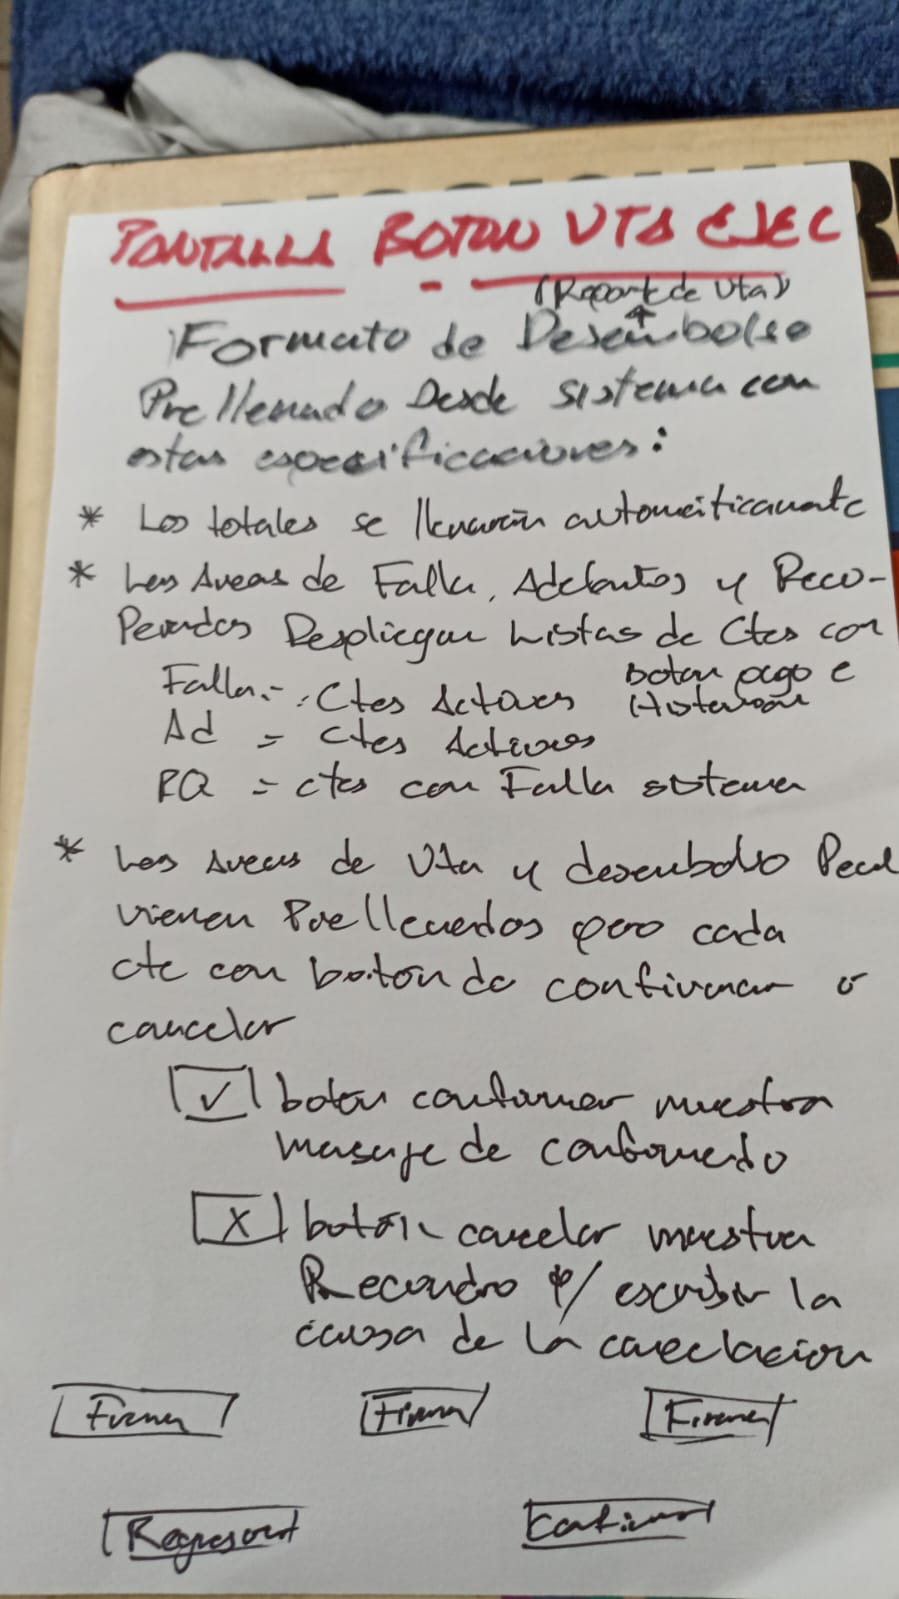 PANTALLA BOTON VTA EJEC
(Reporte de Vta)
Formato de Desembolso
Prellenado Desde sistema con
estas especificaciones:
* Los totales se llenarán automáticamente
* Las Areas de Falla, Adelantos y Reco-
Perados Despliegan Listas de Ctes con
botón pago e
Falla.- Ctes Activos Historial
Ad = Ctes Activos
RQ = ctes con Falla sistema
* Las Areas de Vta y desembolso Real
vienen Prellenados pero cada
cte con botón de confirmar o
cancelar
✓ botón confirmar muestra
mensaje de confirmado
X botón cancelar muestra
Recuadro p/ escribir la
causa de la cancelación
Firma Firma Firma
Regresar Continuar